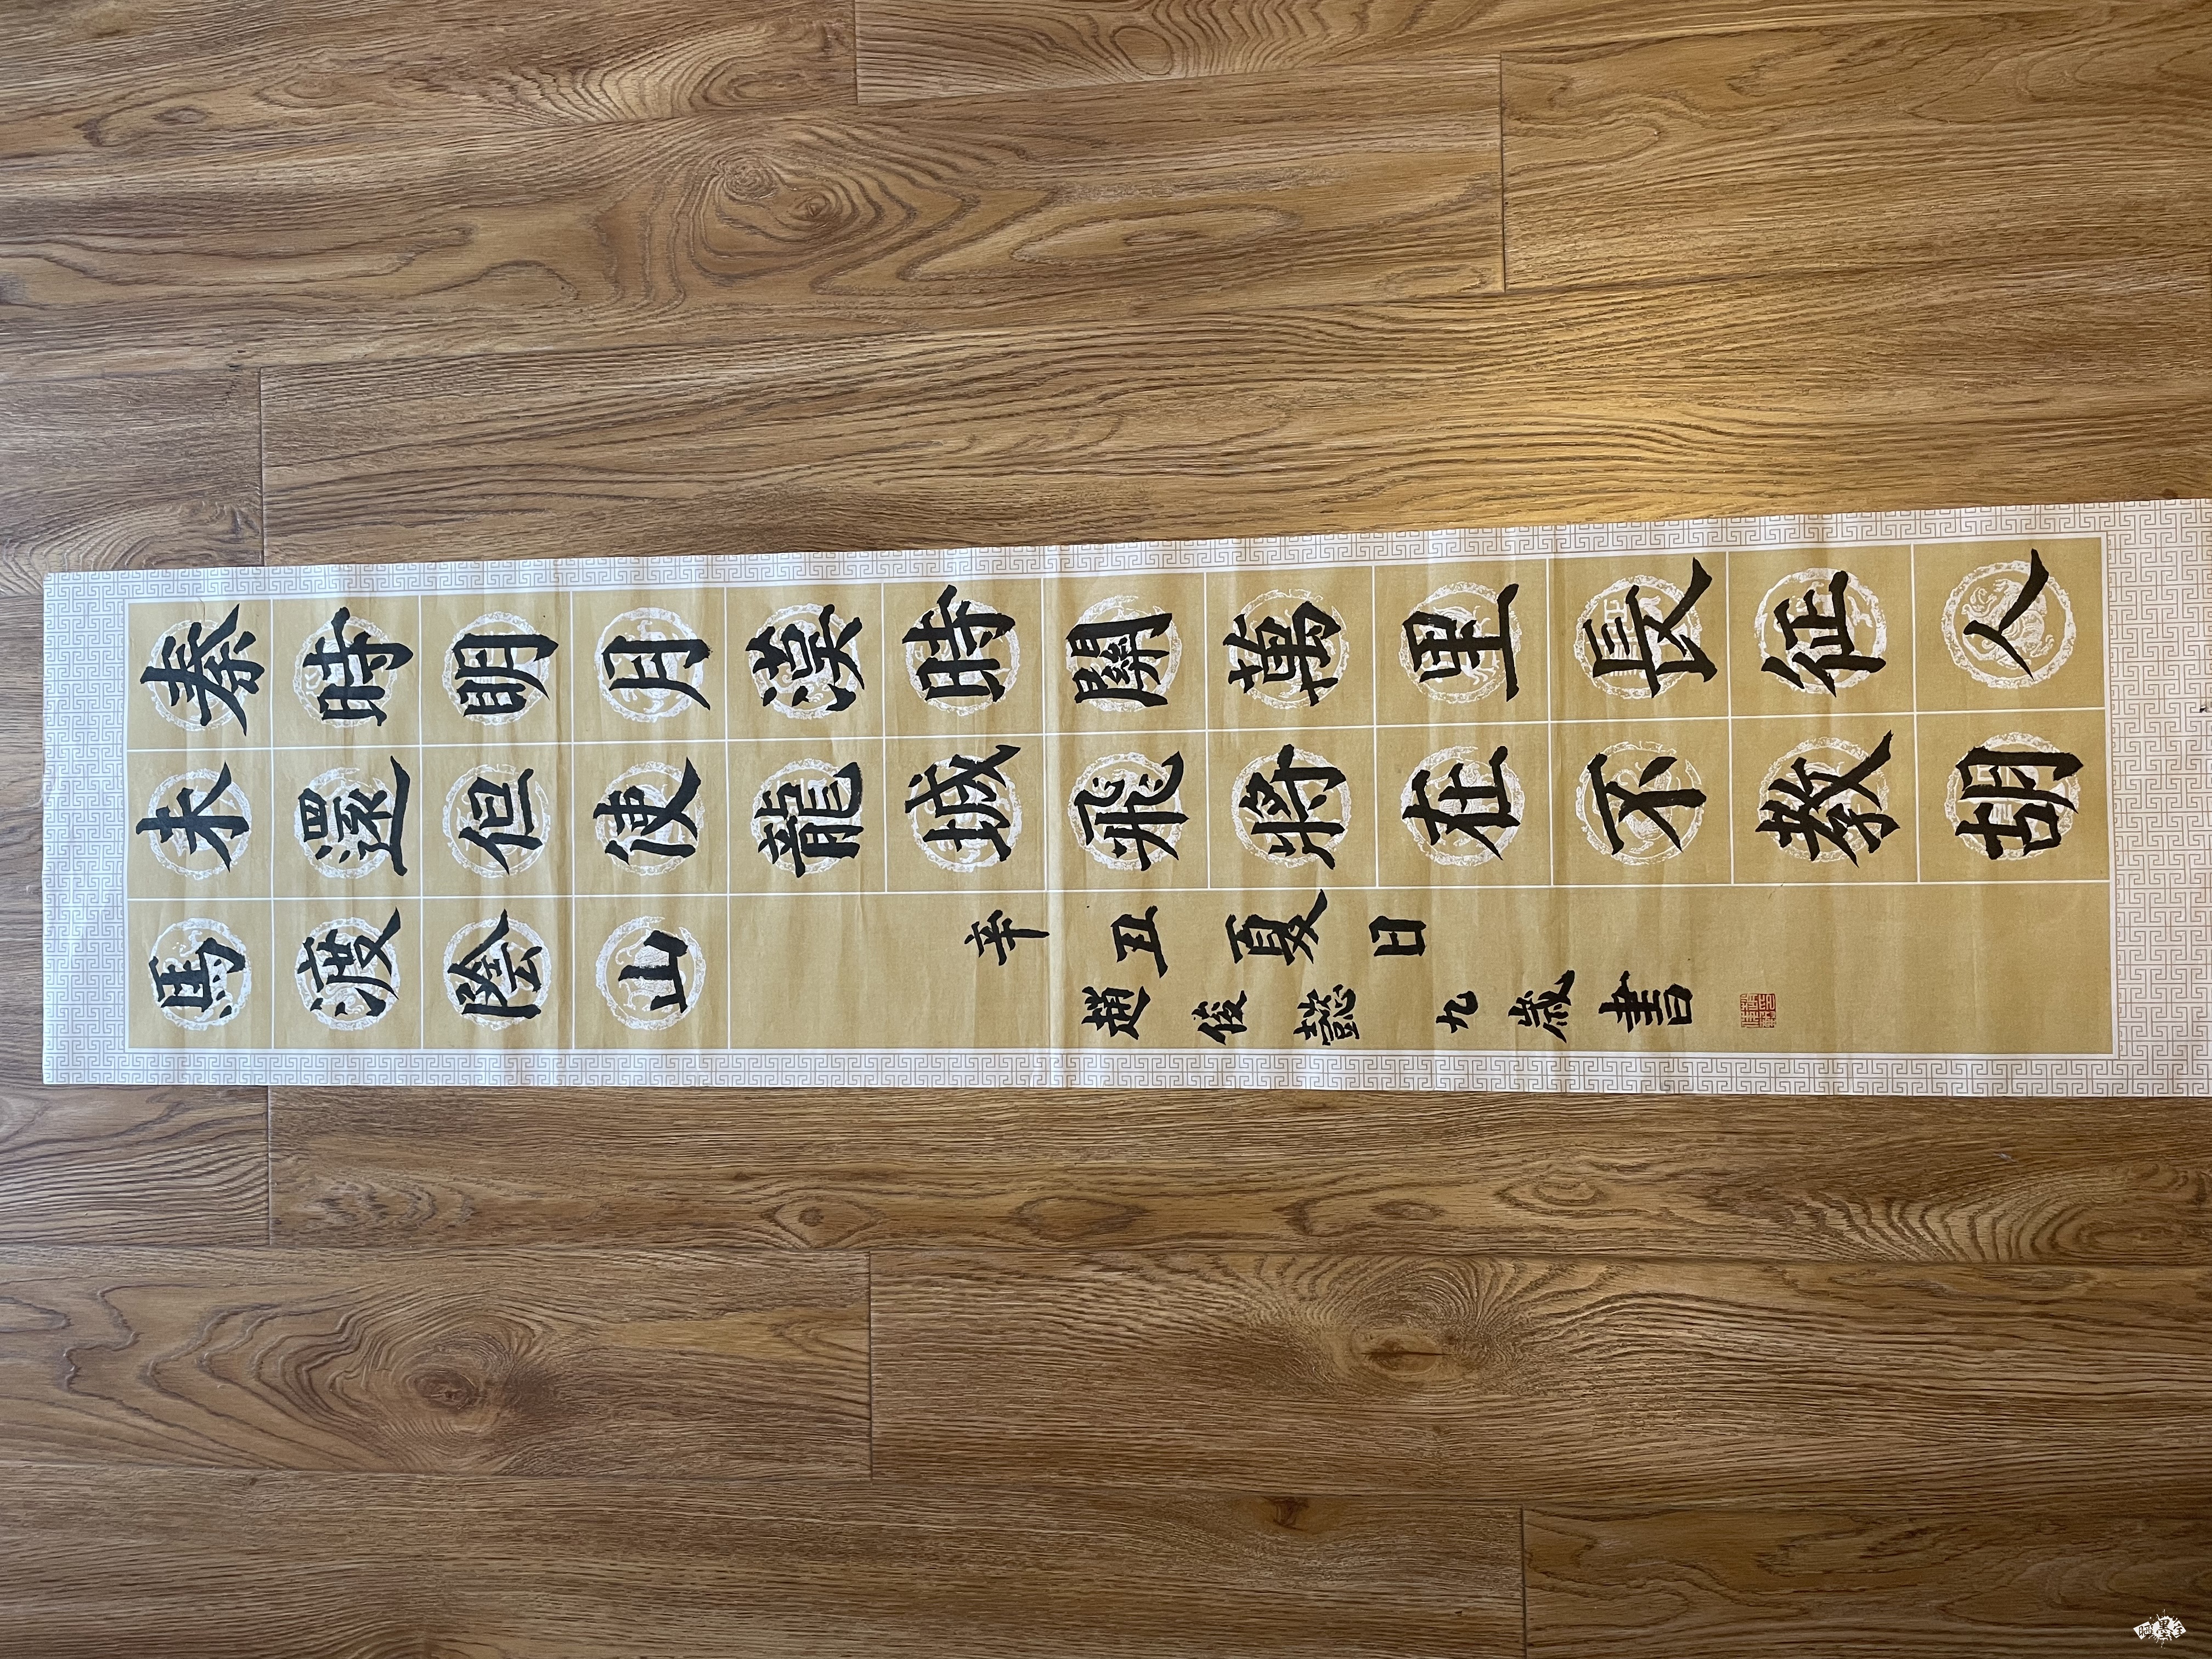 秦時明月漢時關萬里長征人
未還但使龍城飛將在不教胡
馬渡陰山
辛丑夏日
趙俊懿九歲書